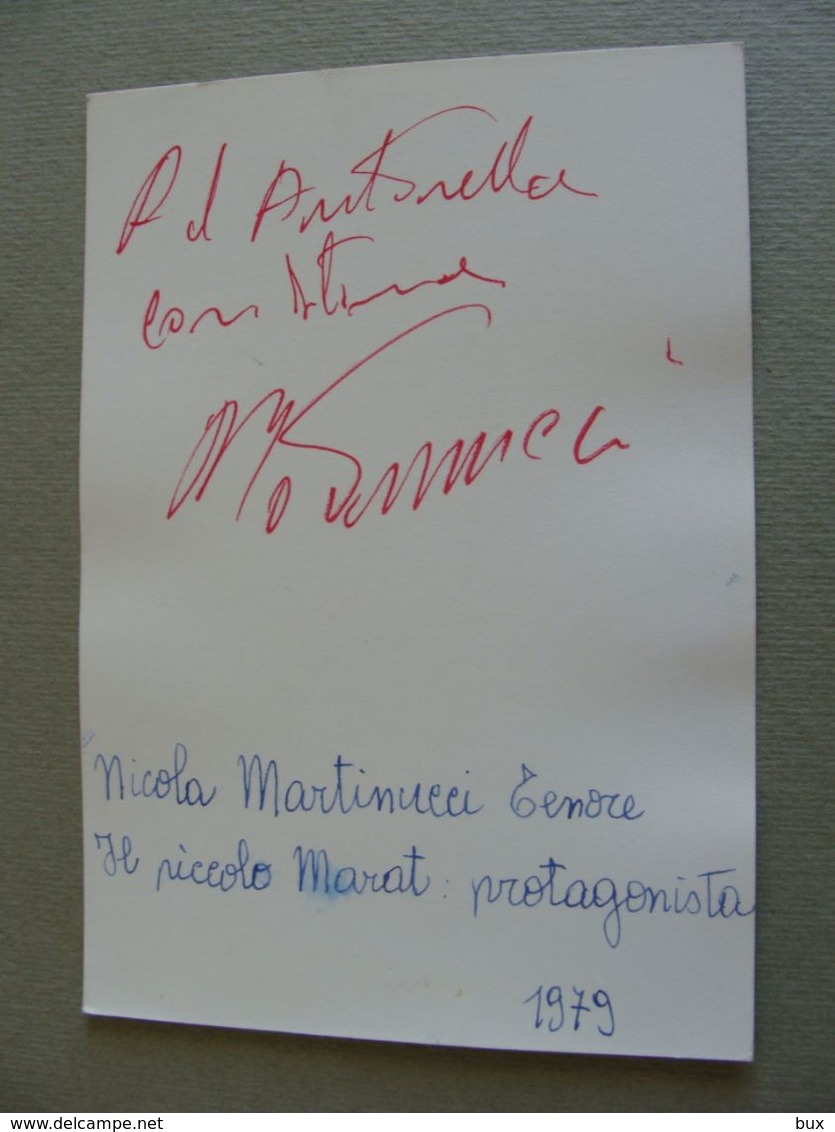 Ad Antonella
con stima
N Martinucci
Nicola Martinucci Tenore
Il piccolo Marat: protagonista
1979
www.delcampe.net
bux